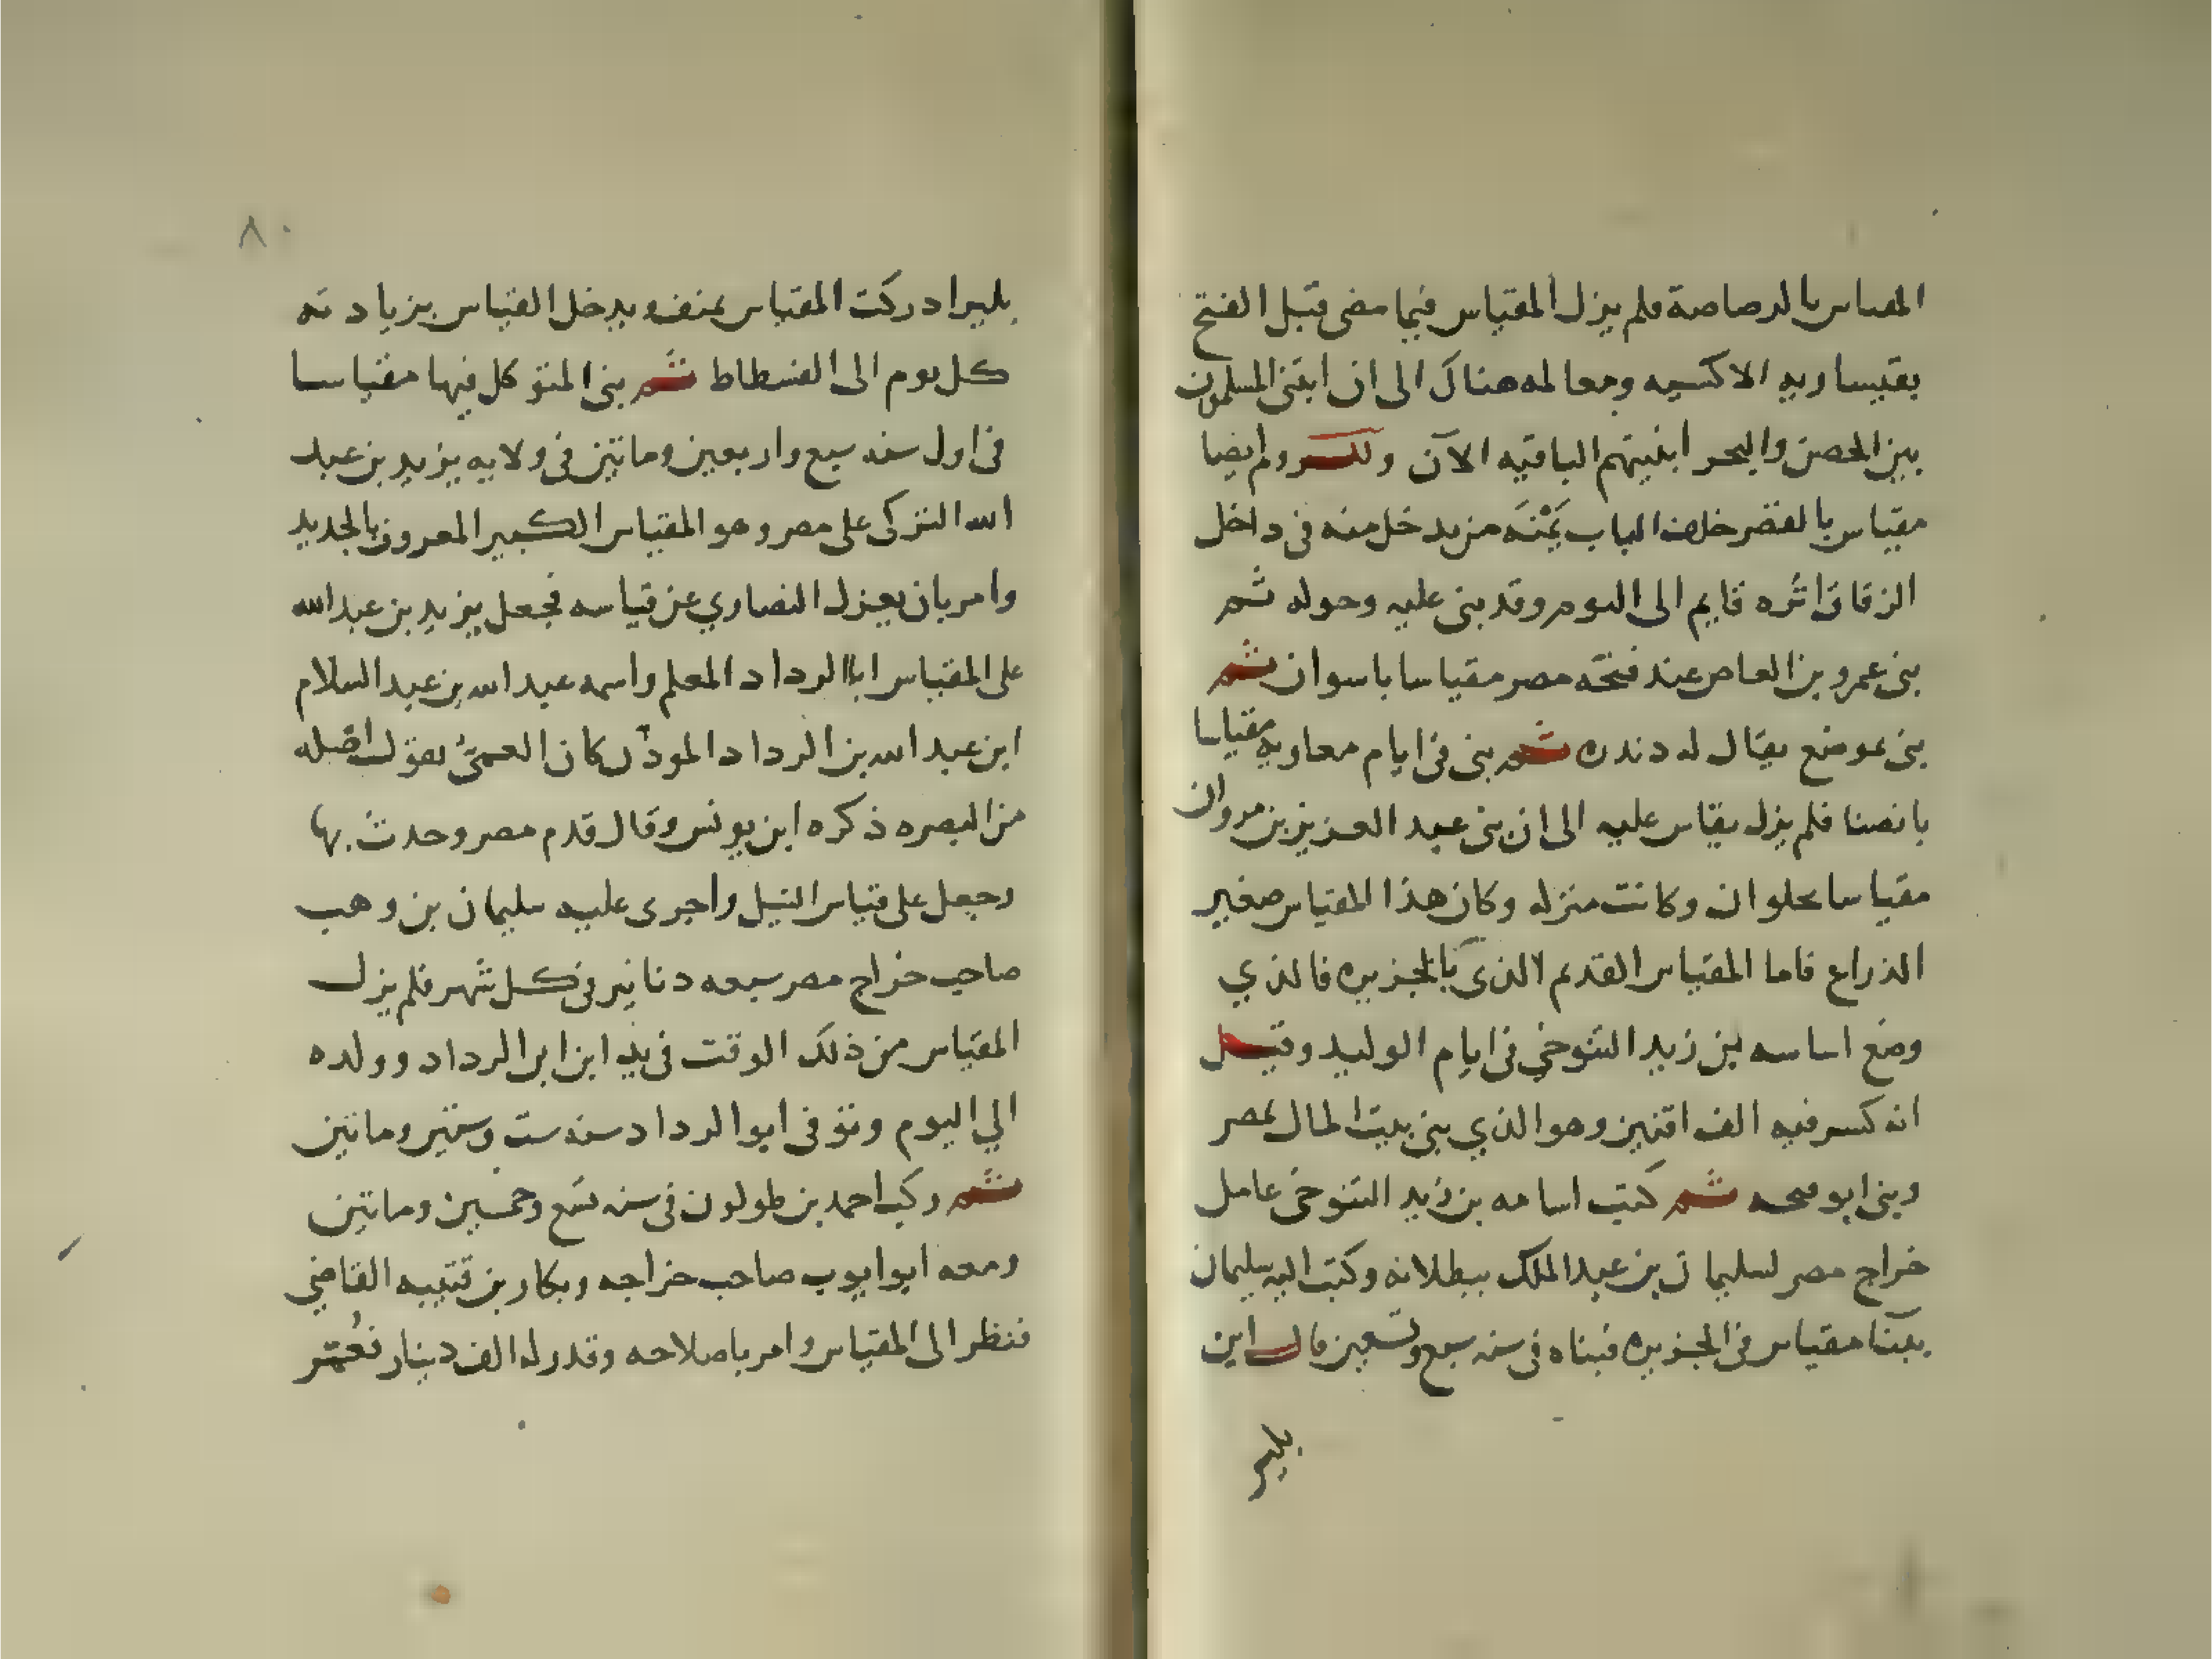 المقياس بالرصاصة فلم يزل المقياس فيما مضى قبل الفتح
بقيساريه الاكسيه ومعالمه هناك الى ان ابتنى المسلمون
بين الحصن والبحر ابنيتهم الباقيه الآن وللسروم ايضا
مقياس بالقصر خلف الباب يمنه من يدخل منه فى داخل
الزقاق اثره قايم الى اليوم وقد بنى عليه وحوله ثم
بنى عمرو بن العاص عند فتحه مصر مقياسا باسوان ثم
بنى بموضع يقال له دندره ثم بنى فى ايام معاويه مقياسا
بانصنا فلم يزل يقاس عليه الى ان بنى عبد العزيز بن مروان
مقياسا بحلوان وكانت منزله وكان هذا المقياس صغير
الذراع فاما المقياس القديم الذى بالجزيره فالذي
وضع اساسه بن زيد التنوخي فى ايام الوليد وقيل
انه كسر فيه الف اقتين وهو الذي بنى بيت المال بمصر
وبنى ابو محمد ثم كتب اسامه بن زيد التنوخى عامل
خراج مصر لسليمان بن عبد الملك ببطلانه وكتب اليه سليمان
ببنا مقياس فى الجزيره فبناه فى سنه سبع وتسعين قال ابن
بكير
٨٠
بكير ادركت المقياس بمنف ويدخل القياس بزيادته
كل يوم الى الفسطاط ثم بنى المتوكل فيها مقياسا
فى اول سنه سبع واربعين وماتين فى ولايه يزيد بن عبد
الله التركى على مصر وهو المقياس الكبير المعروف بالجديد
وامر بان يعزل النصاري عن قياسه فجعل يزيد بن عبد الله
على المقياس ابا الرداد المعلم واسمه عبد الله بن عبد السلام
ابن عبد الله بن الرداد المودن كان العمى يقول اصله
من البصره ذكره ابن يونس وقال قدم مصر وحدث بها
وجعل على قياس النيل واجرى عليه سليمان بن وهب
صاحب خراج مصر سبعه دنانير فى كل شهر فلم يزل
المقياس من ذلك الوقت فى يد ابن ابى الرداد وولده
الي اليوم وتوفى ابو الرداد سنه ست وستين وماتين
ثم ركب احمد بن طولون فى سنه تسع وخمسين وماتين
ومعه ابو ايوب صاحب خراجه وبكار بن قتيبه القاضي
فنظر الى المقياس وامر باصلاحه وقدر له الف دينار فعُمِّر